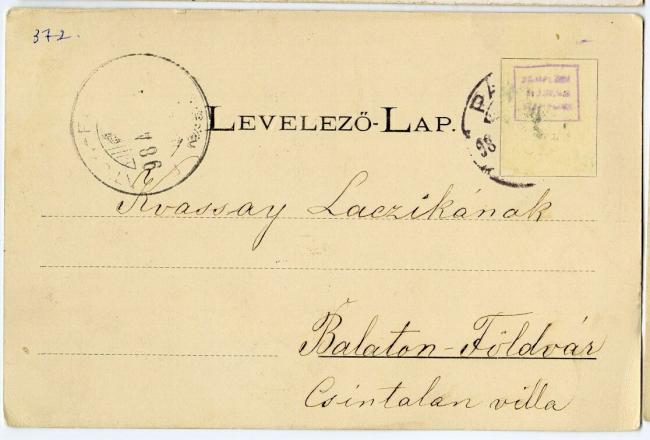 372.
LEVELEZŐ-LAP.
98 4
98
Kvassay Laczikának
Balaton-Földvár
Csintalan villa